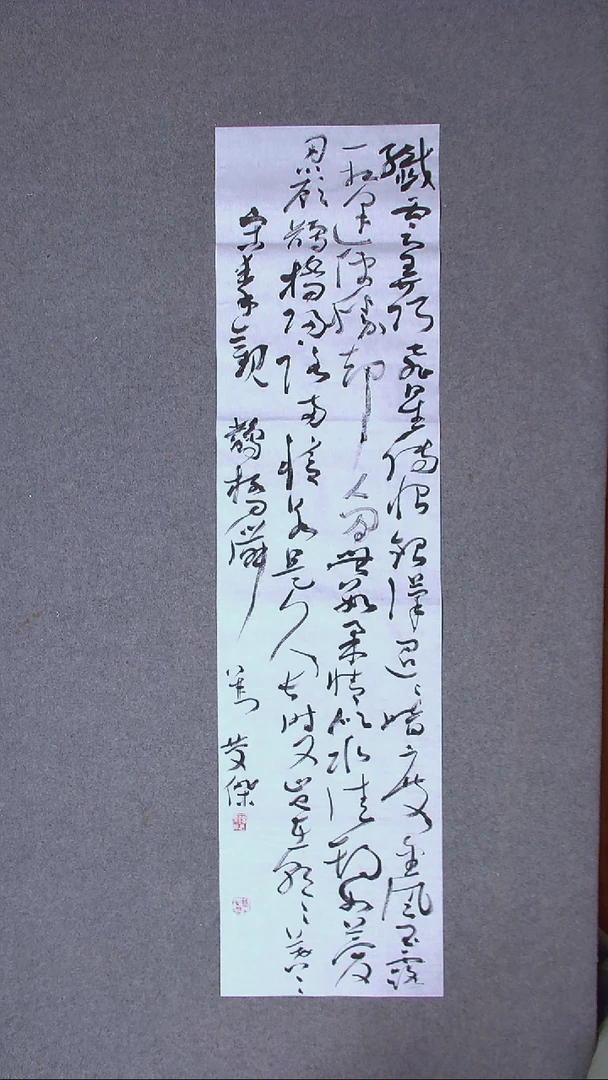 纖雲弄巧飛星傳恨銀漢迢〻暗度金風玉露
一相逢便勝却人間無數柔情似水佳期如夢
忍顧鵲橋歸路兩情若是久長時又豈在朝〻暮〻
宋秦觀 鵲橋僊 傑